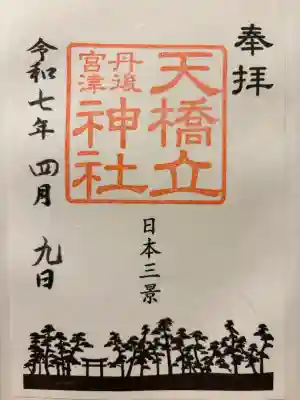 奉拝
天橋立
丹後
宮津
神社
日本三景
令和七年 四月 九日